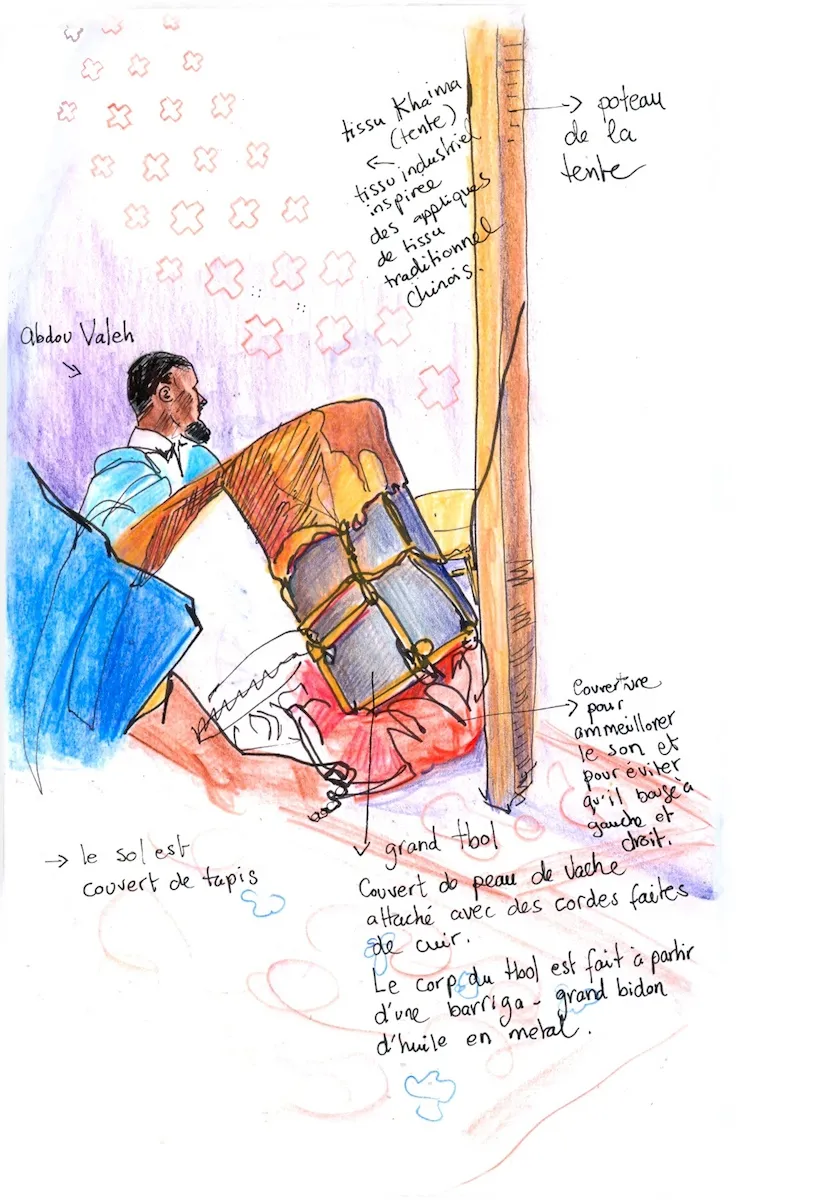 tissu Khaima
(tente)
tissu industriel
inspirée
des appliques
de tissu
traditionnel
chinois.
poteau
de la
tente
Abdou Valeh
Couverture
pour
ammeillorer
le son et
pour éviter
qu'il bouge à
gauche et
droit.
le sol est
couvert de tapis
grand tbol
Couvert de peau de vache
attaché avec des cordes faites
de cuir.
Le corp du tbol est fait à partir
d'une barriga - grand bidon
d'huile en metal.